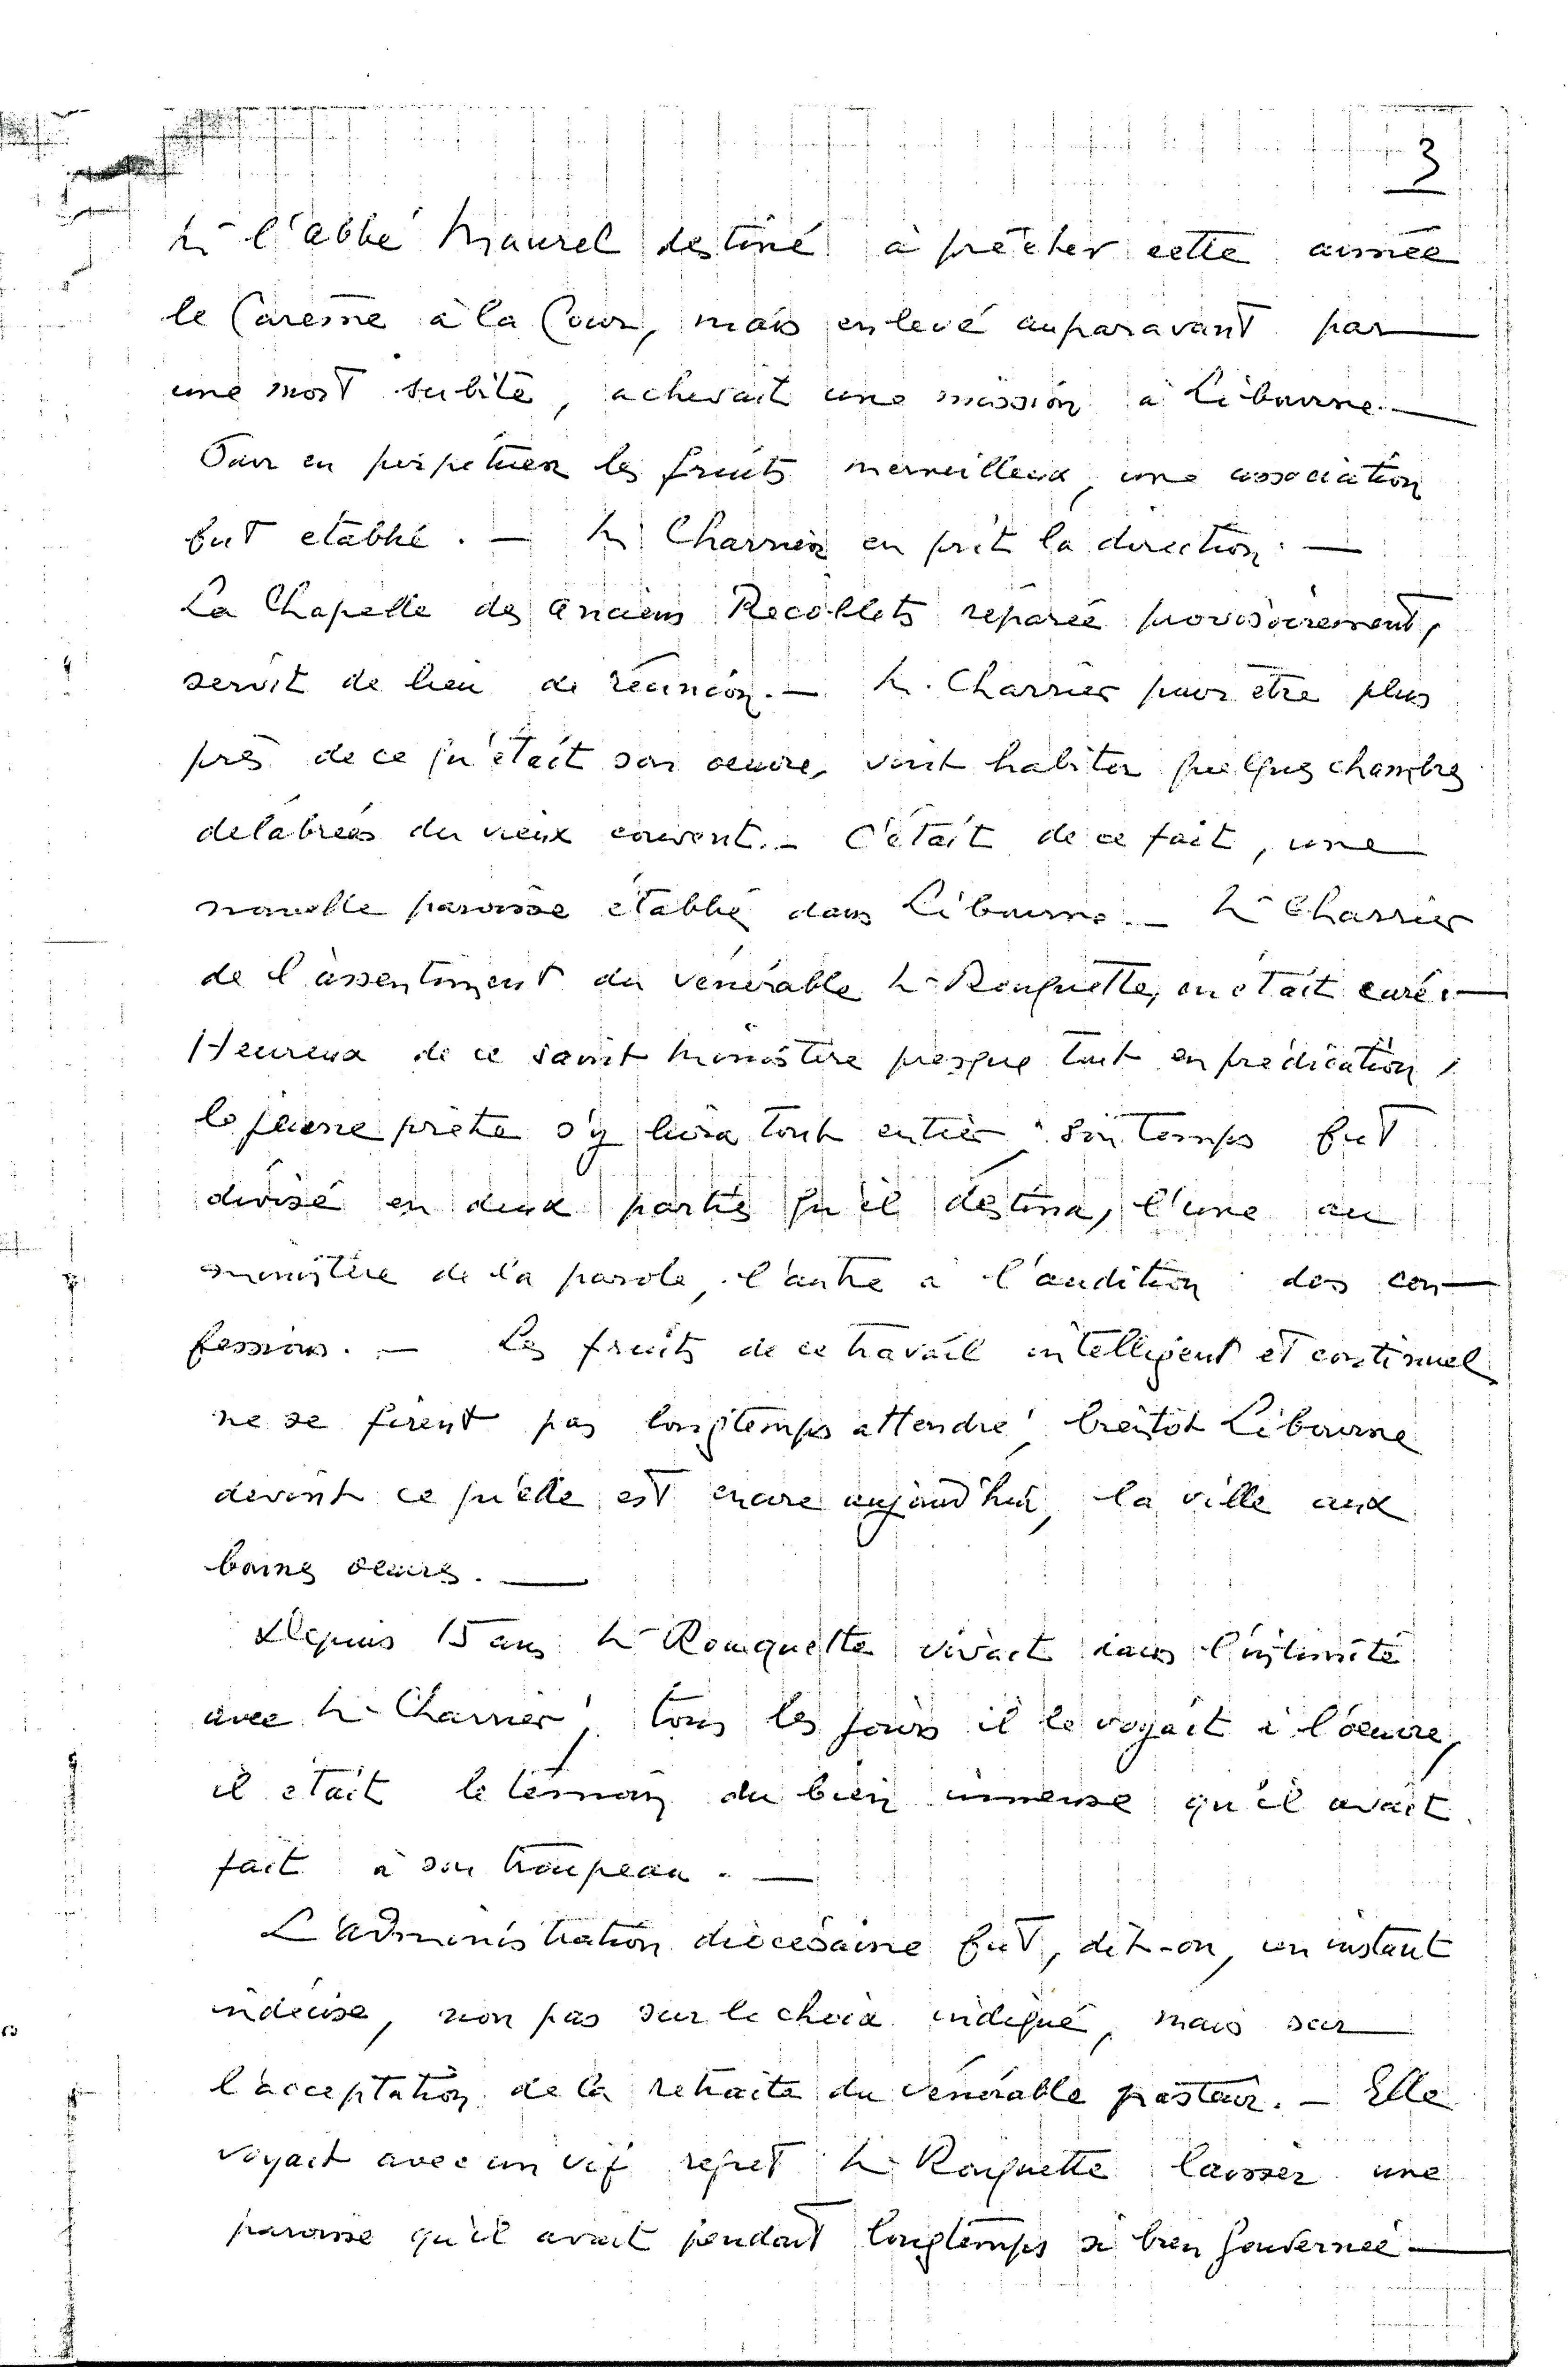 3
Mr l'abbé Maurel destiné à prêcher cette année
le Carème à la Cour, mais enlevé auparavant par
une mort subite, achevait une mission à Libourne. —
Pour en perpétuer les fruits merveilleux, une association
fut etablie. — Mr Charrier en prit la direction. —
La Chapelle des anciens Recollets réparée provisoirement,
servit de lieu de réunion. — Mr. Charrier pour etre plus
près de ce qu'était son oeuvre, vint habiter quelques chambres
delabrées du vieux couvent. — C'était de ce fait, une
nouvelle paroisse établie dans Libourne — Mr Charrier
de l'assentiment du vénérable Mr Rouquette, en était curé. —
Heureux de ce saint ministère presque tout en prédication,
le jeune prêtre s'y livra tout entier ; son temps fut
divisé en deux parties qu'il destina, l'une au
ministère de la parole, l'autre à l'audition des con-
fessions. — Les fruits de ce travail intelligent et continuel
ne se firent pas longtemps attendre ; bientôt Libourne
devint ce qu'elle est encore aujourd'hui, la ville aux
bonnes oeuvres. —
Depuis 15 ans Mr Rouquette vivait dans l'intimité
avec Mr Charrier ; tous les jours il le voyait à l'oeuvre,
il était le témoin du bien immense qu'il avait
fait à son troupeau. —
L'administration diocésaine fut, dit-on, un instant
indécise, non pas sur le choix indiqué, mais sur
l'acceptation de la retraite du vénérable pasteur. — Elle
voyait avec un vif regret Mr Rouquette laisser une
paroisse qu'il avait pendant longtemps si bien gouvernée —